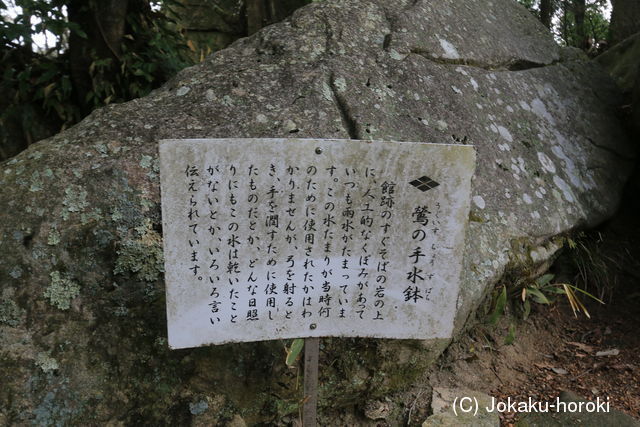 鶯の手水鉢
うぐいす ちょうずばち
館跡のすぐそばの岩の上
に、人工的なくぼみがあって
いつも雨水がたまっていま
す。この水たまりが当時何
のために使用されたかはわ
かりませんが、弓を射ると
き、手を潤すために使用し
たものだとか、どんな日照
りにもこの水は乾いたこと
がないとか、いろいろ言い
伝えられています。
(C) Jokaku-horoki